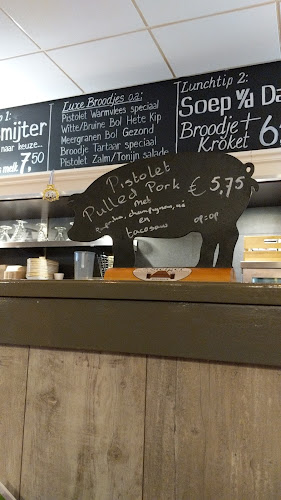 p 1:
smijter
naar keuze...
melk 7,50
Luxe Broodjes o.a:
Pistolet Warmvlees speciaal
Witte/Bruine Bol Hete Kip
Meergranen Bol Gezond
Broodje Tartaar speciaal
Pistolet Zalm/Tonijn salade
Lunchtip 2:
Soep v/d Da
Broodje +
Kroket 6
Pistolet
Pulled Pork € 5,75
met
paprika, champignons, ui
en op=op
tacosaus